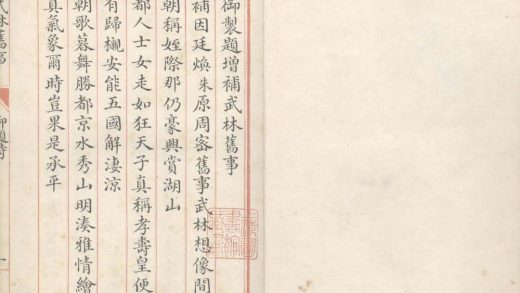 御製題增補武林舊事
補因廷煥朱原周密舊事武林想像間
朝稱姪際那仍豪興賞湖山
都人士女走如狂天子真稱孝壽皇便
有歸櫬安能五國解淒涼
朝歌暮舞勝都京水秀山明湊雅情繪
真氣象爾時豈果是承平
武林舊事
御題詩
一